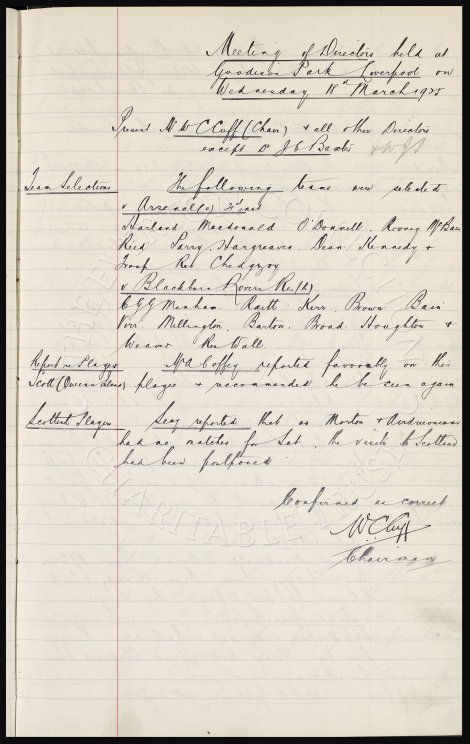 Meeting of Directors held at
Goodison Park Liverpool on
Wednesday 18th March 1925
Present Mr W C Cuff (Chair) & all other Directors
except Dr J C Baxter & WJS
Team Selections The following teams were selected
v Arsenal (a) 1st inst
Harland Macdonald O'Donnell Rooney McBain
Reid Parry Hargreaves Dean Kennedy &
Troup Res Chedgzoy
v Blackburn Rovers Res (h)
C G G Menham Raitt Kerr Brown Bain
Virr Millington Barton Broad Houghton &
Weaver Res Wall
Report re Player Mr A Coffey reported favorably on this
Scott (Queens Island) player & recommended he be seen again
Scottish Players Secy reported that as Morton & Airdrieonians
had no matches for Sat, the visits to Scotland
had been postponed.
Confirmed as correct
W.C. Cuff
Chairman
CHARITABLE